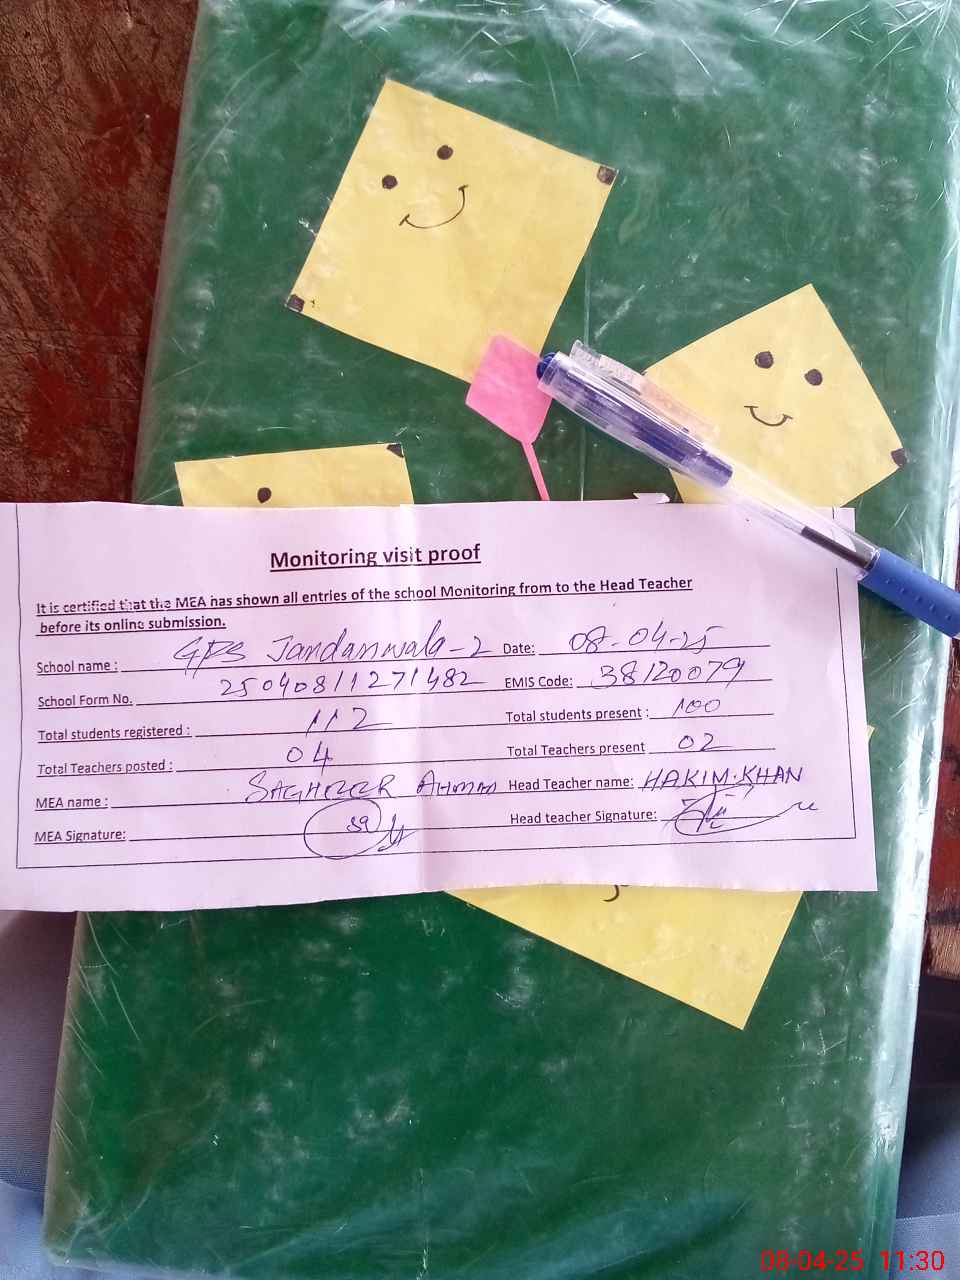 Monitoring visit proof
It is certified that the MEA has shown all entries of the school Monitoring from to the Head Teacher
before its online submission.
School name : GPS Jandanwala-2 Date: 08-04-25
School Form No. 25040811271482 EMIS Code: 38120079
Total students registered : 112 Total students present : 100
Total Teachers posted : 04 Total Teachers present 02
MEA name : SAGHEER AHMAD Head Teacher name: HAKIM.KHAN
MEA Signature: Head teacher Signature:
08-04-25 11:30